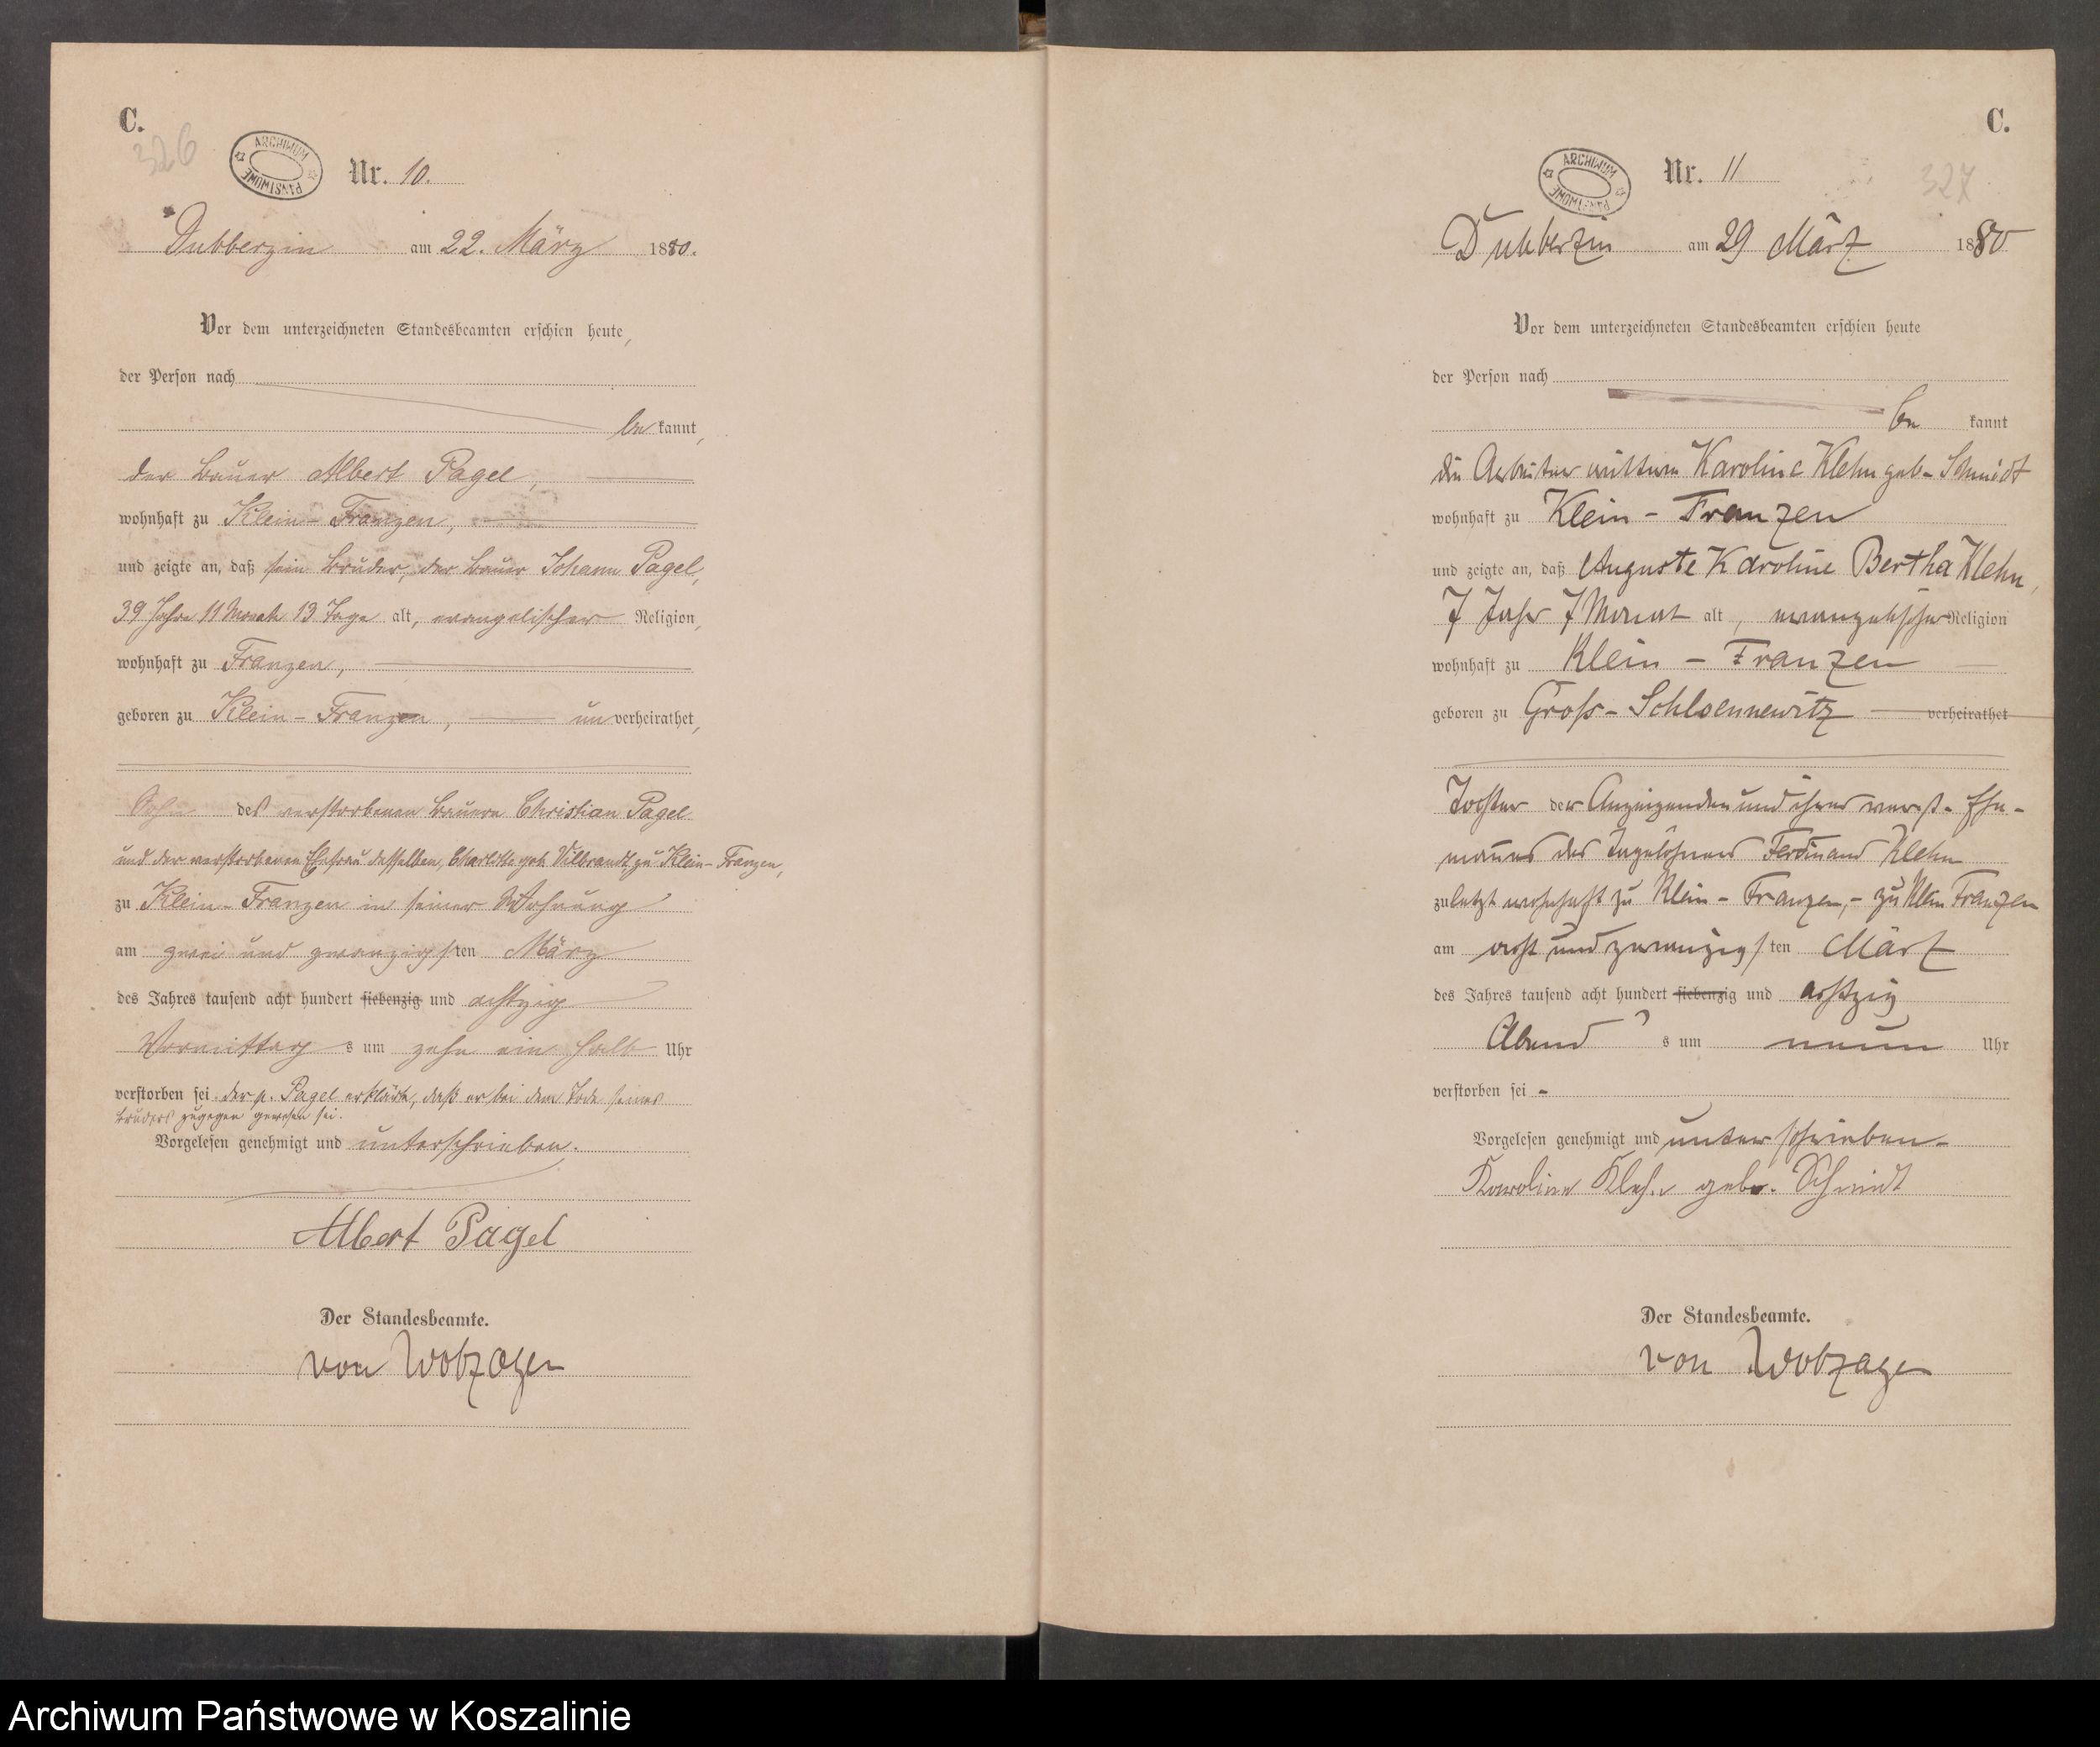 C.
326
ARCHIWUM
PAŃSTWOWE
Nr. 10.
Dubberzin am 22. März 1880.
Vor dem unterzeichneten Standesbeamten erschien heute,
der Person nach
be kannt,
der Bauer Albert Pagel,
wohnhaft zu Klein-Franzen,
und zeigte an, daß sein Bruder, der Bauer Johann Pagel,
39 Jahre 11 Monate 13 Tage alt, evangelischer Religion,
wohnhaft zu Franzen,
geboren zu Klein-Franzen, un verheirathet,
Sohn des verstorbenen Bauern Christian Pagel
und der verstorbenen Ehefrau desselben, Charlotte geb. Vilbrandt zu Klein-Franzen,
zu Klein-Franzen in seiner Wohnung
am zwei und zwanzigsten März
des Jahres tausend acht hundert siebenzig und achtzig
Vormittag s um zehn ein halb Uhr
verstorben sei. der p. Pagel erklärte, daß er bei dem Tode seines
Bruders zugegen gewesen sei.
Vorgelesen genehmigt und unterschrieben.
Albert Pagel
Der Standesbeamte.
von Wobzager
C.
327
ARCHIWUM
PAŃSTWOWE
Nr. 11
Dubberzin am 29 März 1880
Vor dem unterzeichneten Standesbeamten erschien heute
der Person nach
be kannt
die Arbeiter wittwe Karoline Klehn geb- Schmidt
wohnhaft zu Klein-Franzen
und zeigte an, daß Auguste Karoline Bertha Klehn,
7 Jahr 7 Monat alt, evangelischer Religion
wohnhaft zu Klein-Franzen
geboren zu Gross-Schloennewitz verheirathet
Tochter der Anzeigenden und ihres verst- Ehe-
mannes des Tagelöhners Ferdinand Klehn
zuletzt wohnhaft zu Klein-Franzen,- zu Klein Franzen
am acht und zwanzigsten März
des Jahres tausend acht hundert siebenzig und achtzig
Abend s um neun Uhr
verstorben sei -
Vorgelesen genehmigt und unterschrieben-
Karoline Klehn gebr. Schmidt
Der Standesbeamte.
von Wobzager
Archiwum Państwowe w Koszalinie